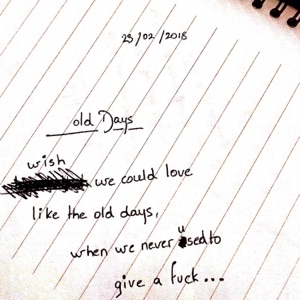 23/02/2018
old Days
wish
we could love
like the old days,
when we never used to
give a fuck...